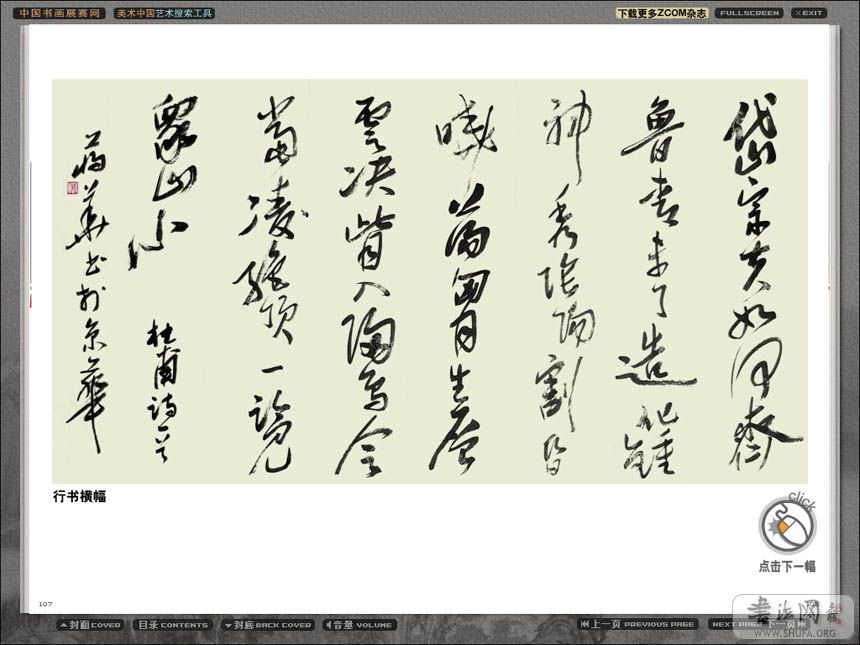 中国书画展赛网
美术中国艺术搜索工具
下载更多ZCOM杂志
FULLSCREEN
×EXIT
岱宗夫如何齊
魯青未了造化鍾
神秀陰陽割昏
曉盪胸生層
雲决眥入歸鳥会
當凌絕頂一覽
眾山小
杜甫詩一首
蔣華书於京華
行书横幅
click
点击下一幅
107
封面COVER
目录CONTENTS
封底BACK COVER
音量 VOLUME
上一页 PREVIOUS PAGE
NEXT PAGE 下一页
書法网
WWW.SHUFA.ORG